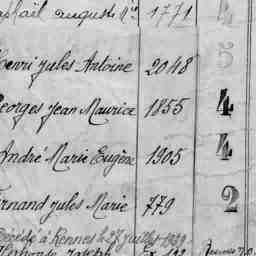 Auguste M. 1771 4
Henri Jules Antoine 2048 5
Georges Jean Maurice 1855 4
André Marie Eugène 1905 4
Fernand Jules Marie 779 2
Décédé à Rennes le 27 juillet 1929